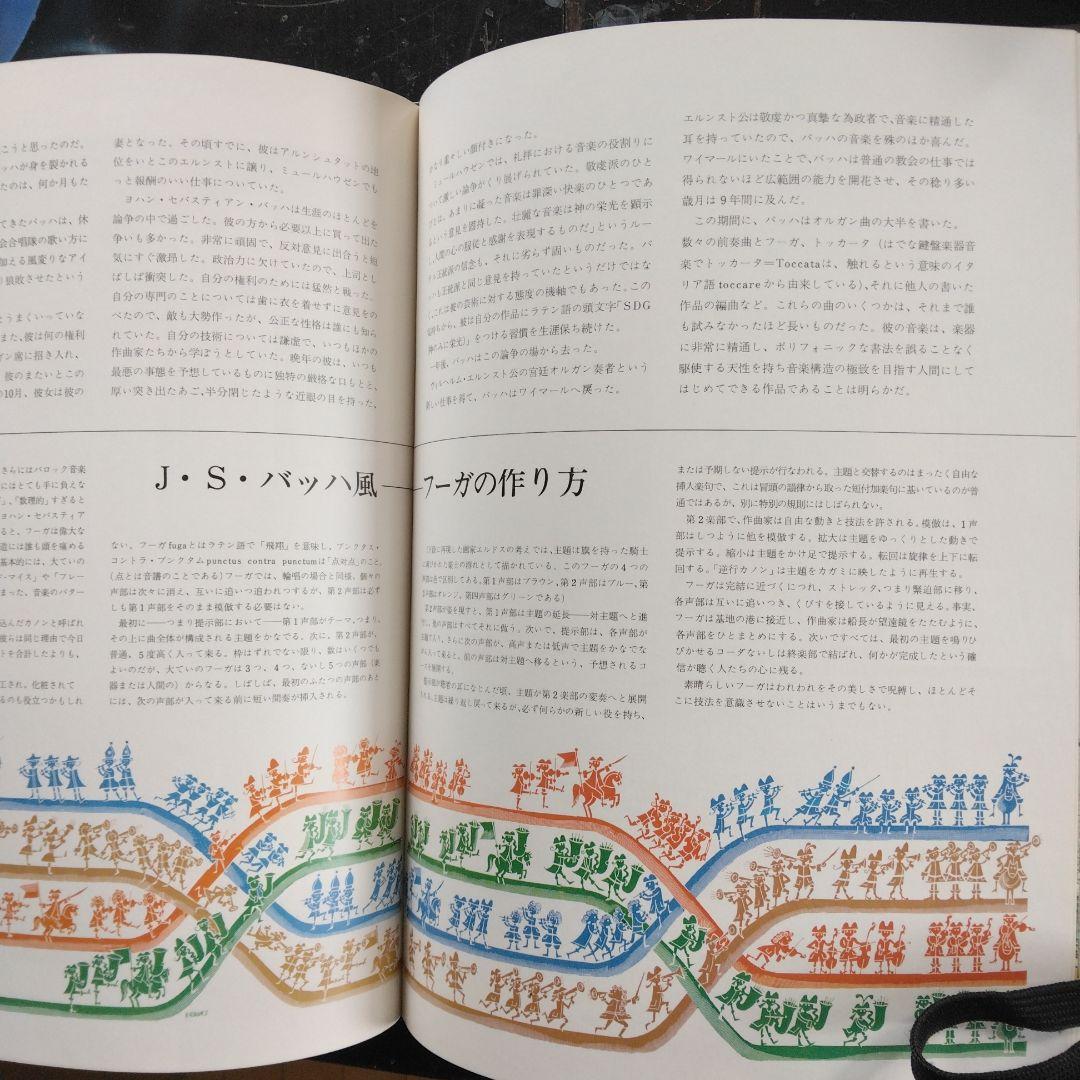 こうと思ったのだ。
ッハが身を裂かれる
たのは、何か月もた
てきたバッハは、休
会合唱隊の歌い方に
加える風変りなアイ
り狼敗させたという
ようまくいっていな
また、彼は何の権利
イン席に招き入れ、
彼のまたいとこの
の10月、彼女は彼の
妻となった。その頃すでに、彼はアルンシュタットの地
位をいとこのエルンストに譲り、ミュールハウゼンでも
っと報酬のいい仕事についていた。
ヨハン・セバスティアン・バッハは生涯のほとんどを
論争の中で過ごした。彼の方から必要以上に買って出た
争いも多かった。非常に頑固で、反対意見に出合うと短
気にすぐ激昂した。政治力に欠けていたので、上司とし
ばしば衝突した。自分の権利のためには猛然と戦った。
自分の専門のことについては歯に衣を着せずに意見をの
べたので、敵も大勢作ったが、公正な性格は誰にも知ら
れていた。自分の技術については謙虚で、いつもほかの
作曲家たちから学ぼうとしていた。晩年の彼は、いつも
最悪の事態を予想しているものに独特の厳格な口もとと、
厚い突き出たあご、半分閉じたような近眼の目を持った、
かなり重々しい顔付きになった。
ミュールハウゼンでは、礼拝における音楽の役割りに
ついて激しい論争がくり展げられていた。敬虔派のひと
びとは、あまりに凝った音楽は罪深い快楽のひとつであ
るという意見を固持した。壮麗な音楽は神の栄光を顕示
し、人間の心の服従と感謝を表現するものだ」というルー
テル正統派の信念も、それに劣らず固いものだった。バ
ッハも正統派と同じ意見を持っていたというだけではな
く、これは彼の芸術に対する態度の機軸でもあった。この
気持ちから、彼は自分の作品にラテン語の頭文字「SDG
(神のみに栄光)」をつける習慣を生涯保ち続けた。
一年後、バッハはこの論争の場から去った。
ヴィルヘルム・エルンスト公の宮廷オルガン奏者という
新しい仕事を得て、バッハはワイマールへ戻った。
エルンスト公は敬虔かつ真摯な為政者で、音楽に精通した
耳を持っていたので、バッハの音楽を殊のほか喜んだ。
ワイマールにいたことで、バッハは普通の教会の仕事では
得られないほど広範囲の能力を開花させ、その稔り多い
歳月は9年間に及んだ。
この期間に、バッハはオルガン曲の大半を書いた。
数々の前奏曲とフーガ、トッカータ（はでな鍵盤楽器音
楽でトッカータ＝Toccataは、触れるという意味のイタ
リア語toccareから由来している)、それに他人の書いた
作品の編曲など。これらの曲のいくつかは、それまで誰
も試みなかったほど長いものだった。彼の音楽は、楽器
に非常に精通し、ポリフォニックな書法を誤ることなく
駆使する天性を持ち音楽構造の極致を目指す人間にして
はじめてできる作品であることは明らかだ。
J・S・バッハ風——フーガの作り方
さらにはバロック音楽
にはとても手に負えな
「数理的」すぎると
ヨハン・セバスティア
ると、フーガは偉大な
造には誰も頭を痛める
基本的には、大ていの
・マイス」や「フレー
まった、音楽のパター
込んだカノンと呼ばれ
彼らは同じ理由で今日
トを合計したよりも、
工され、化粧されて
るのも役立つかもしれ
ない、フーガfugaとはラテン語で「飛翔」を意味し、プンクタス・
コントラ・プンクタムpunctus contra punctumは「点対点」のこと。
(点とは音譜のことである)フーガでは、輪唱の場合と同様、個々の
声部は次々に消え、互いに追いつ追われつするが、第2声部は必ず
しも第1声部をそのまま模倣する必要はない。
最初に——つまり提示部において——第1声部がテーマ、つまり、
その上に曲全体が構成される主題をかなでる。次に、第2声部が、
普通、5度高く入って来る。枠はずれでない限り、数はいくつでも
よいのだが、大ていのフーガは3つ、4つ、ないし5つの声部（楽
器または人間の）からなる。しばしば、最初のふたつの声部のあと
には、次の声部が入って来る前に短い間奏が挿入される。
下段に再現した画家エルドスの考えでは、主題は旗を持った騎士
に導かれた楽士の群れとして描かれている。このフーガの4つの
声部は色で区別してある。第1声部はブラウン、第2声部はブルー、第
3声部はオレンジ、第四声部はグリーンである)
第2声部が姿を現すと、第1声部は主題の延長——対主題へと進
行し、他の声部はすべてそれに倣う。次いで、提示部は、各声部が
出ており、さらに次の声部が、高声または低声で主題をかなでな
がら入って来ると、前の声部は対主題へ移るという、予想されるコ
ースを展開する。
提示部が聴者の耳になじんだ頃、主題が第2楽部の変奏へと展開
される。主題は繰り返し戻って来るが、必ず何らかの新しい役を持ち、
または予期しない提示が行なわれる。主題と交替するのはまったく自由な
挿入楽句で、これは冒頭の韻律から取った短付加楽句に基いているのが普
通ではあるが、別に特別の規則にはしばられない。
第2楽部で、作曲家は自由な動きと技法を許される。模倣は、1声
部はしつように他を模倣する。拡大は主題をゆっくりとした動きで
提示する。縮小は主題をかけ足で提示する。転回は旋律を上下に転
回する。「逆行カノン」は主題をカガミに映したように再生する。
フーガは完結に近づくにつれ、ストレッタ、つまり緊迫部に移り、
各声部は互いに追いつき、くびすを接しているように見える。事実、
フーガは基地の港に接近し、作曲家は船長が望遠鏡をたたむように、
各声部をひとまとめにする。次いですべては、最初の主題を鳴りひ
びかせるコーダないしは終楽部で結ばれ、何かが完成したという確
信が聴く人たちの心に残る。
素晴らしいフーガはわれわれをその美しさで呪縛し、ほとんどそ
こに技法を意識させないことはいうまでもない。